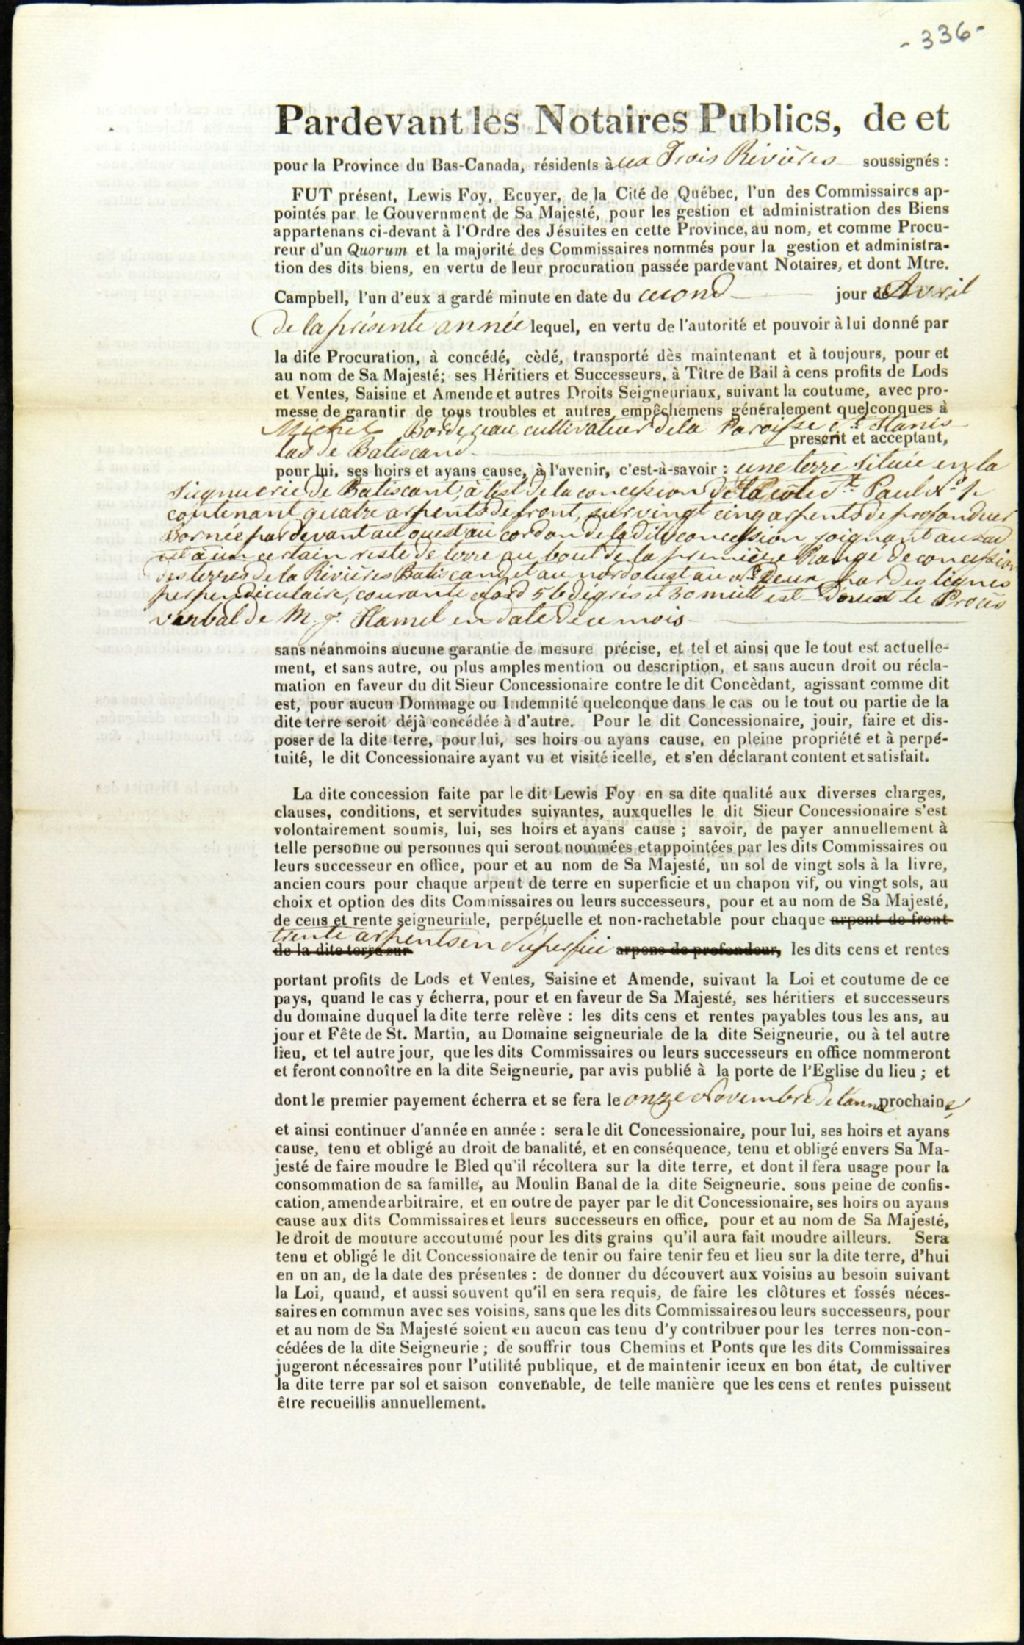 - 336 -
Pardevant les Notaires Publics, de et
pour la Province du Bas-Canada, résidents à ux Trois Rivières soussignés :
FUT présent, Lewis Foy, Ecuyer, de la Cité de Québec, l'un des Commissaires ap-
pointés par le Gouvernment de Sa Majesté, pour les gestion et administration des Biens
appartenans ci-devant à l'Ordre des Jésuites en cette Province, au nom, et comme Procu-
reur d'un Quorum et la majorité des Commissaires nommés pour la gestion et administra-
tion des dits biens, en vertu de leur procuration passée pardevant Notaires, et dont Mtre.
Campbell, l'un d'eux a gardé minute en date du second jour de Avril
de la présente année lequel, en vertu de l'autorité et pouvoir à lui donné par
la dite Procuration, à concédé, cèdé, transporté dès maintenant et à toujours, pour et
au nom de Sa Majesté; ses Héritiers et Successeurs, à Titre de Bail à cens profits de Lods
et Ventes, Saisine et Amende et autres Droits Seigneuriaux, suivant la coutume, avec pro-
messe de garantir de tous troubles et autres empêchemens généralement quelconques à
Michel Bordeleau cultivateur de la Paroisse St. Stanis
las de Batiscand présent et acceptant,
pour lui, ses hoirs et ayans cause, à l'avenir, c'est-à-savoir : une terre située en la
Seigneurie de Batiscant, à l'est de la concession de la côte St. Paul
contenant quatre arpents de front, sur vingt cinq arpents de profondeur
Bornée par devant au ouest au cordon de la dite concession joignant au sud
est à un certain reste de terre au bout de la première Rangé de concession
des terres de la Rivières Batiscand et au nord ouest au No. Deux par des lignes
perpendiculaire, courante nord 56 degrés et 30 minutes est Suivant le Procès
verbal de M. J. Hamel en date de ce mois
sans néanmoins aucune garantie de mesure précise, et tel et ainsi que le tout est actuelle-
ment, et sans autre, ou plus amples mention ou description, et sans aucun droit ou récla-
mation en faveur du dit Sieur Concessionaire contre le dit Concèdant, agissant comme dit
est, pour aucun Dommage ou Indemnité quelconque dans le cas ou le tout ou partie de la
dite terre seroit déjà concédée à d'autre. Pour le dit Concessionaire, jouir, faire et dis-
poser de la dite terre, pour lui, ses hoirs ou ayans cause, en pleine propriété et à perpé-
tuité, le dit Concessionaire ayant vu et visité icelle, et s'en déclarant content et satisfait.
La dite concession faite par le dit Lewis Foy en sa dite qualité aux diverses charges,
clauses, conditions, et servitudes suivantes, auxquelles le dit Sieur Concessionaire s'est
volontairement soumis, lui, ses hoirs et ayans cause ; savoir, de payer annuellement à
telle personne ou personnes qui seront nommées et appointées par les dits Commissaires ou
leurs successeur en office, pour et au nom de Sa Majesté, un sol de vingt sols à la livre,
ancien cours pour chaque arpent de terre en superficie et un chapon vif, ou vingt sols, au
choix et option des dits Commissaires ou leurs successeurs, pour et au nom de Sa Majesté,
de cens et rente seigneuriale, perpétuelle et non-rachetable pour chaque arpent de front
trente arpents en Superficie
de la dite terre sur arpens de profondeur, les dits cens et rentes
portant profits de Lods et Ventes, Saisine et Amende, suivant la Loi et coutume de ce
pays, quand le cas y écherra, pour et en faveur de Sa Majesté, ses héritiers et successeurs
du domaine duquel la dite terre relève : les dits cens et rentes payables tous les ans, au
jour et Fête de St. Martin, au Domaine seigneuriale de la dite Seigneurie, ou à tel autre
lieu, et tel autre jour, que les dits Commissaires ou leurs successeurs en office nommeront
et feront connoître en la dite Seigneurie, par avis publié à la porte de l'Eglise du lieu ; et
dont le premier payement écherra et se fera le onze Novembre de l'anné prochaine
et ainsi continuer d'année en année : sera le dit Concessionaire, pour lui, ses hoirs et ayans
cause, tenu et obligé au droit de banalité, et en conséquence, tenu et obligé envers Sa Ma-
jesté de faire moudre le Bled qu'il récoltera sur la dite terre, et dont il fera usage pour la
consommation de sa famille, au Moulin Banal de la dite Seigneurie, sous peine de confis-
cation, amende arbitraire, et en outre de payer par le dit Concessionaire, ses hoirs ou ayans
cause aux dits Commissaires et leurs successeurs en office, pour et au nom de Sa Majesté,
le droit de mouture accoutumé pour les dits grains qu'il aura fait moudre ailleurs. Sera
tenu et obligé le dit Concessionaire de tenir ou faire tenir feu et lieu sur la dite terre, d'hui
en un an, de la date des présentes : de donner du découvert aux voisins au besoin suivant
la Loi, quand, et aussi souvent qu'il en sera requis, de faire les clôtures et fossés néces-
saires en commun avec ses voisins, sans que les dits Commissaires ou leurs successeurs, pour
et au nom de Sa Majesté soient en aucun cas tenu d'y contribuer pour les terres non-con-
cédées de la dite Seigneurie ; de souffrir tous Chemins et Ponts que les dits Commissaires
jugeront nécessaires pour l'utilité publique, et de maintenir iceux en bon état, de cultiver
la dite terre par sol et saison convenable, de telle manière que les cens et rentes puissent
être recueillis annuellement.